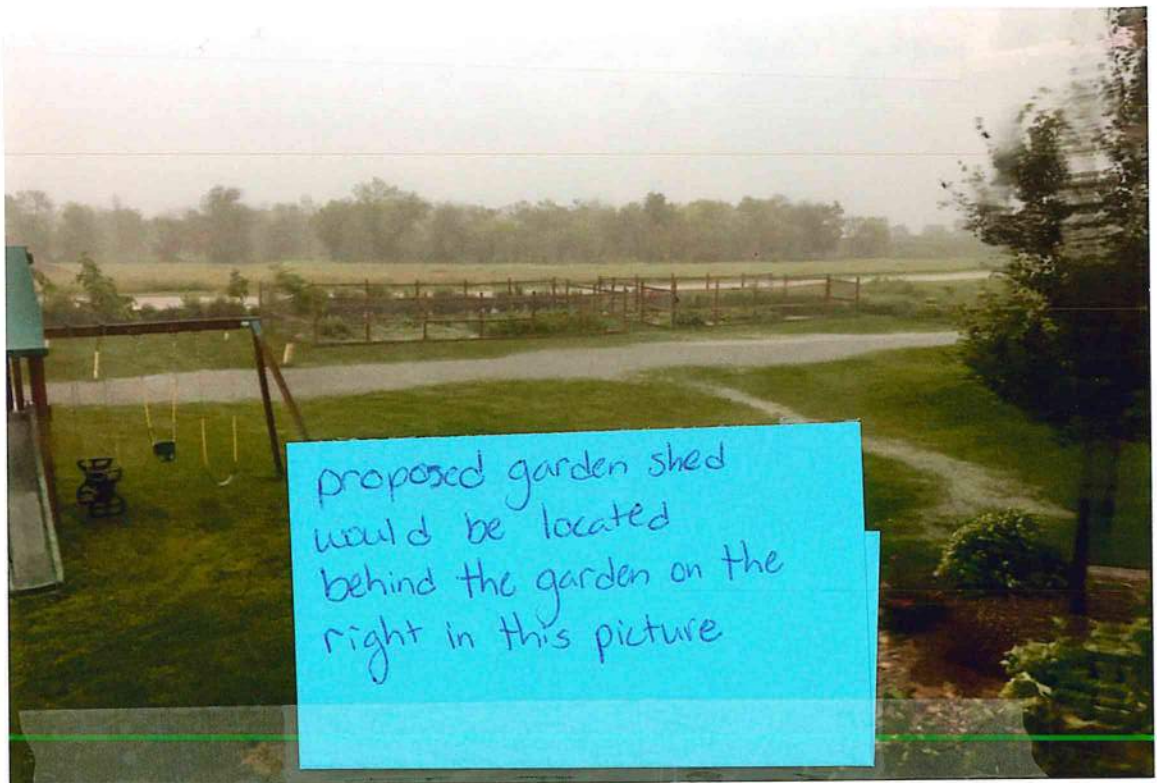 proposed garden shed
would be located
behind the garden on the
right in this picture